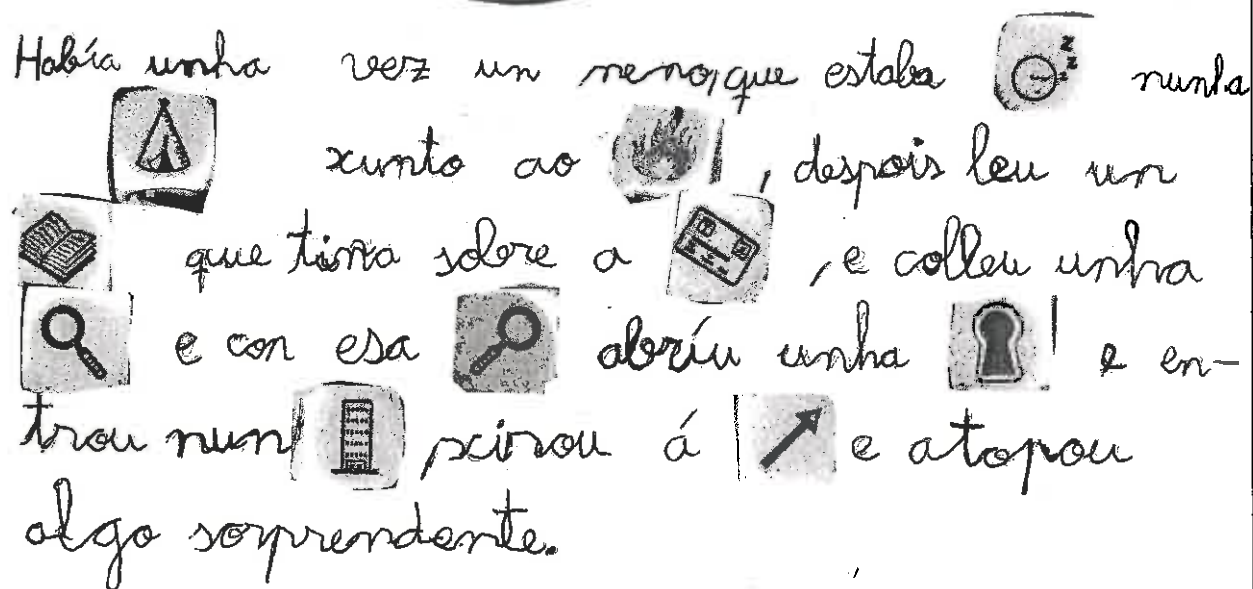 Había unha vez un neno, que estaba nunha
xunto ao , despois leu un
que tiña sobre a , e colleu unha
e con esa abríu unha e en-
trou nun , xirou á e atopou
algo sorprendente.